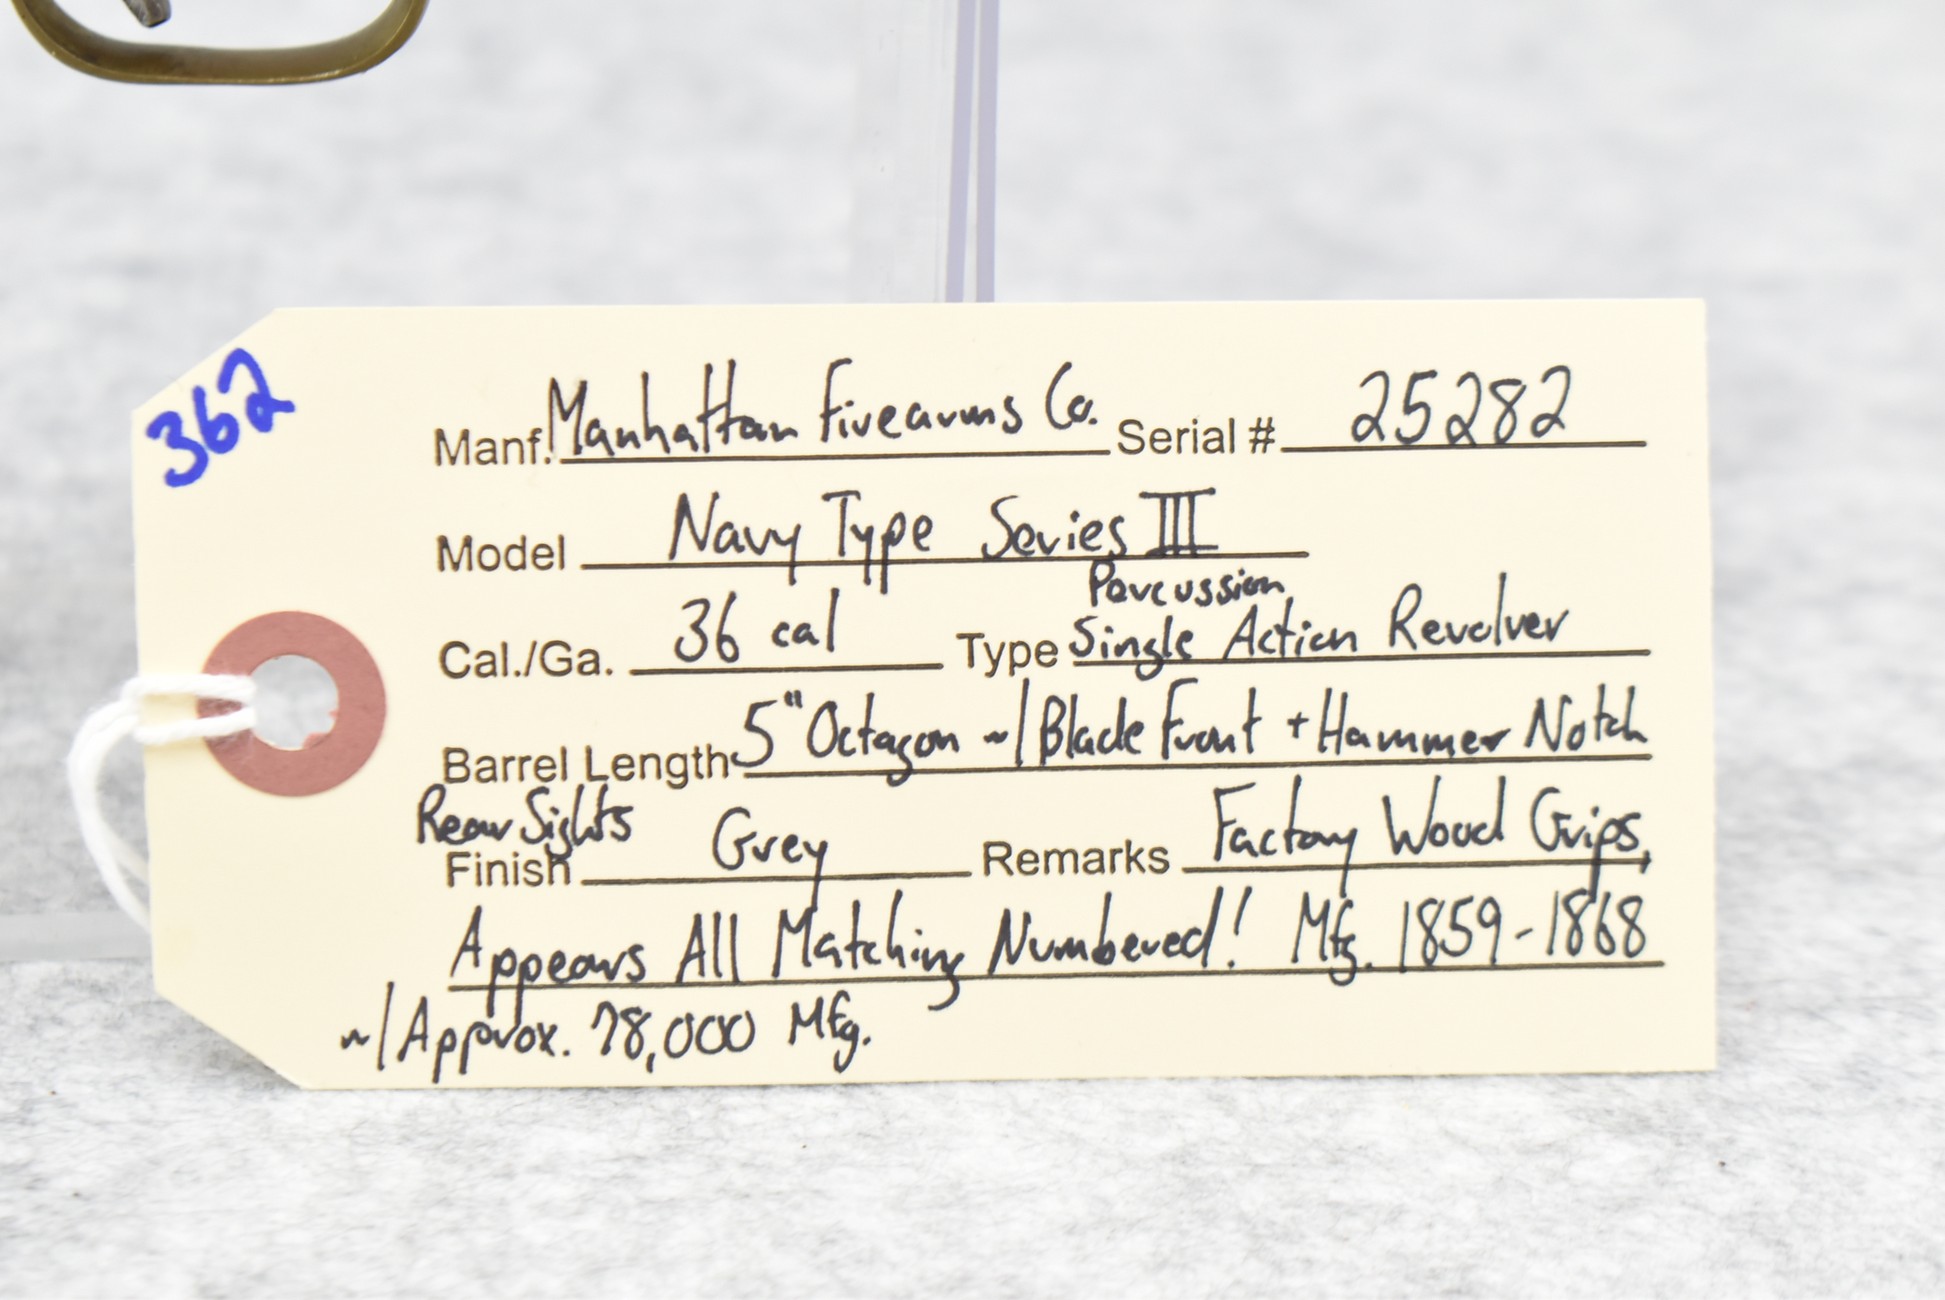 362
Manf. Manhattan Firearms Co. Serial # 25282
Model Navy Type Series III
Percussion
Cal./Ga. 36 cal Type Single Action Revolver
Barrel Length 5" Octagon w/ Blade Front + Hammer Notch
Rear Sights
Finish Grey Remarks Factory Wood Grips,
Appears All Matching Numbered! Mfg. 1859-1868
w/ Approx. 78,000 Mfg.